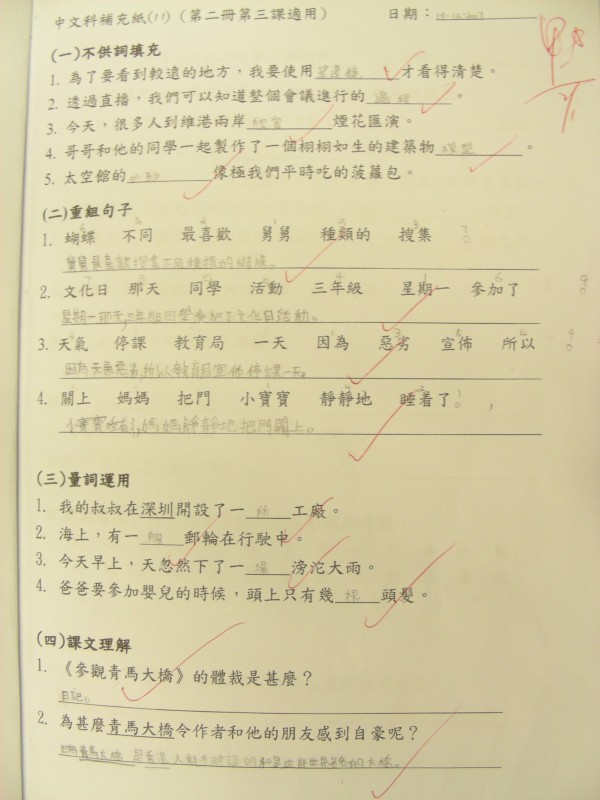 中文科補充紙(11) (第二冊第三課適用) 日期：
(一)不供詞填充
1. 為了要看到較遠的地方，我要使用望遠鏡才看得清楚。
2. 透過直播，我們可以知道整個會議進行的過程。
3. 今天，很多人到維港兩岸欣賞煙花匯演。
4. 哥哥和他的同學一起製作了一個栩栩如生的建築物模型。
5. 太空館的外形像極我們平時吃的菠蘿包。
(二)重組句子
1. 蝴蝶 不同 最喜歡 舅舅 種類的 搜集
舅舅最喜歡搜集不同種類的蝴蝶。
2. 文化日 那天 同學 活動 三年級 星期一 參加了
星期一那天,三年級同學參加了文化日活動。
3. 天氣 停課 教育局 一天 因為 惡劣 宣佈 所以
因為天氣惡劣,所以教育局宣佈停課一天。
4. 關上 媽媽 把門 小寶寶 靜靜地 睡着了 ，
小寶寶睡着了,媽媽靜靜地把門關上。
(三)量詞運用
1. 我的叔叔在深圳開設了一所工廠。
2. 海上，有一艘郵輪在行駛中。
3. 今天早上，天忽然下了一場滂沱大雨。
4. 爸爸要參加嬰兒的時候，頭上只有幾根頭髮。
(四)課文理解
1. 《參觀青馬大橋》的體裁是甚麼？
日記。
2. 為甚麼青馬大橋令作者和他的朋友感到自豪呢？
青馬大橋是香港人的大橋。